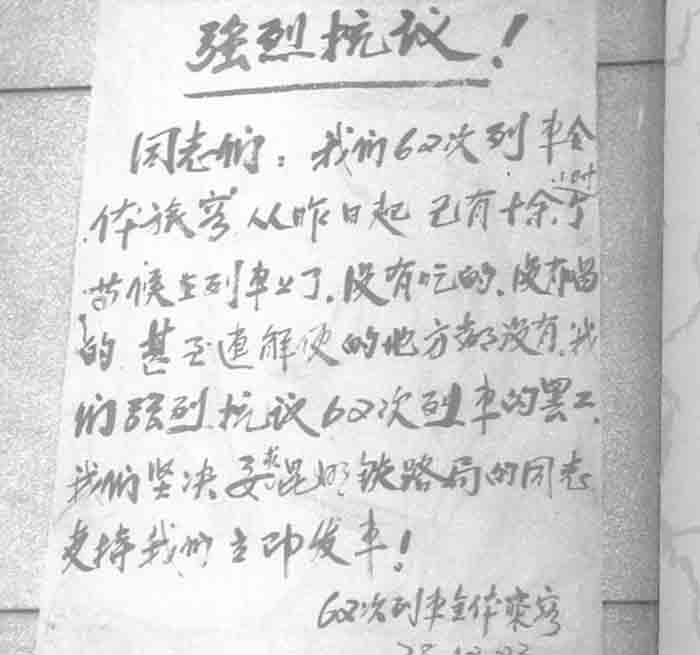 强烈抗议！
同志们：我们62次列車全
体旅客从昨日起已有十余个
小时
苦候在列車上了，没有吃的，没有喝
的 甚至连解便的地方都没有，我
们强烈抗议62次列車的罢工，
我们坚决要求昆明铁路局的同志
支持我们立即发車！
62次列車全体乘客